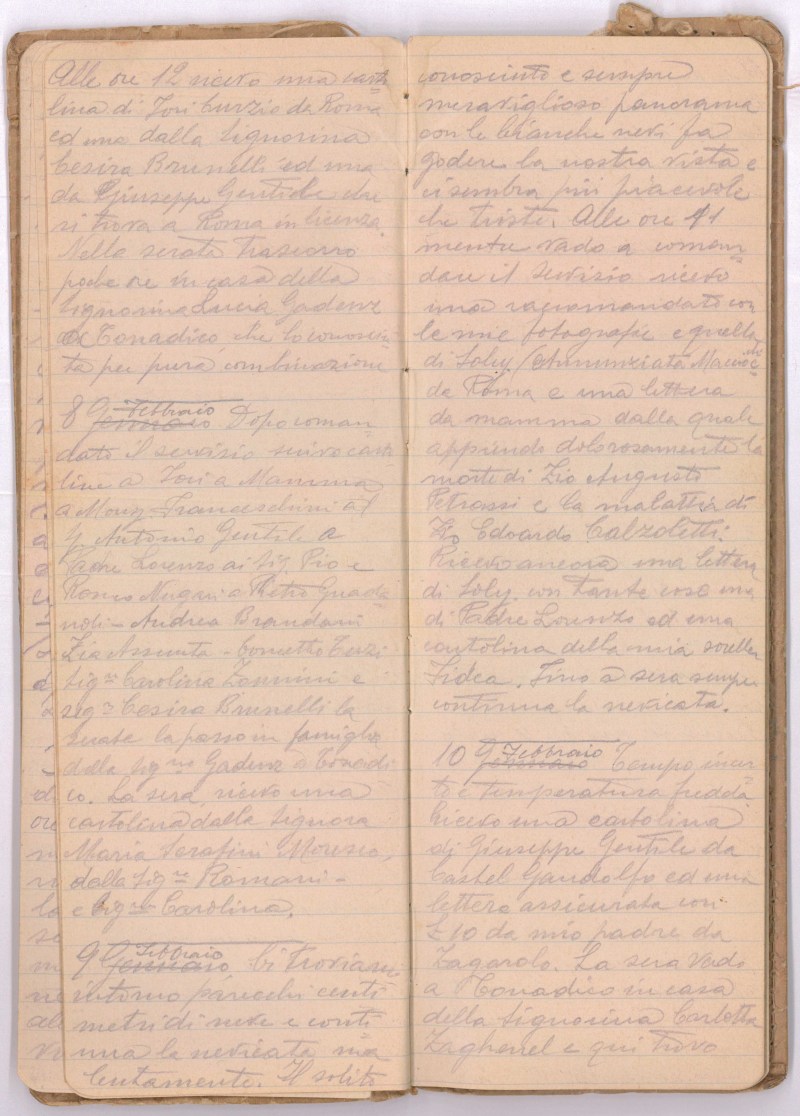 Alle ore 12 ricevo una carto
lina di Tori Curzio da Roma
ed una dalla Signorina
Cesira Brunelli ed una
da Giuseppe Gentile che
si trova a Roma in licenza.
Nella serata trascorro
poche ore in casa della
Signorina Lucia Gadenz
a Tonadico che lo conosciu
ta per pura combinazione
8 Gennaio Febbraio Dopo coman
dato il servizio scrivo carto
line a Tori a Mamma
a Mons. Franceschini al
Antonio Gentile a
Lorenzo ai Sig. Pio e
Romeo a Pietro Guada
noli - Andrea Brandani
Zia Assunta - Concetto Terzi
Sig.na Carolina Zannini e
sig.na Cesira Brunelli la
serata la passo in famiglia
della sig.na Gadenz a Tonadi
co. La sera ricevo una
cartolina dalla Signora
Maria Serafini Moresco,
dalla Sig.ra Romani -
e Sig.na Carolina.
9 Gennaio Febbraio Ci troviamo
intorno parecchi centi
metri di neve e conti
nua la nevicata ma
lentamente. Il solito
conosciuto e sempre
meraviglioso panorama
con le bianche nevi fa
godere la nostra vista e
ci sembra più piacevole
che triste. Alle ore 11
mentre vado a coman
dare il servizio ricevo
una raccomandata con
le mie fotografie e quella
di Soly (Annunziata
da Roma e una lettera
da mamma dalla quale
apprendo dolorosamente la
morte di Zio Augusto
Petrassi e la malattia di
Zio Edoardo Calzoletti.
Ricevo ancora una lettera
di Soly, con tante cose una
di Padre Lorenzo ed una
cartolina della mia sorella
Fidea. Fino a sera sempre
continua la nevicata.
10 Gennaio Febbraio Tempo incer
to e temperatura fredda
Ricevo una cartolina
di Giuseppe Gentile da
Castel Gandolfo ed una
lettera assicurata con
£ 10 da mio padre da
Zagarolo. La sera vado
a Tonadico in casa
della Signorina Carlotta
Zagherrel e qui trovo